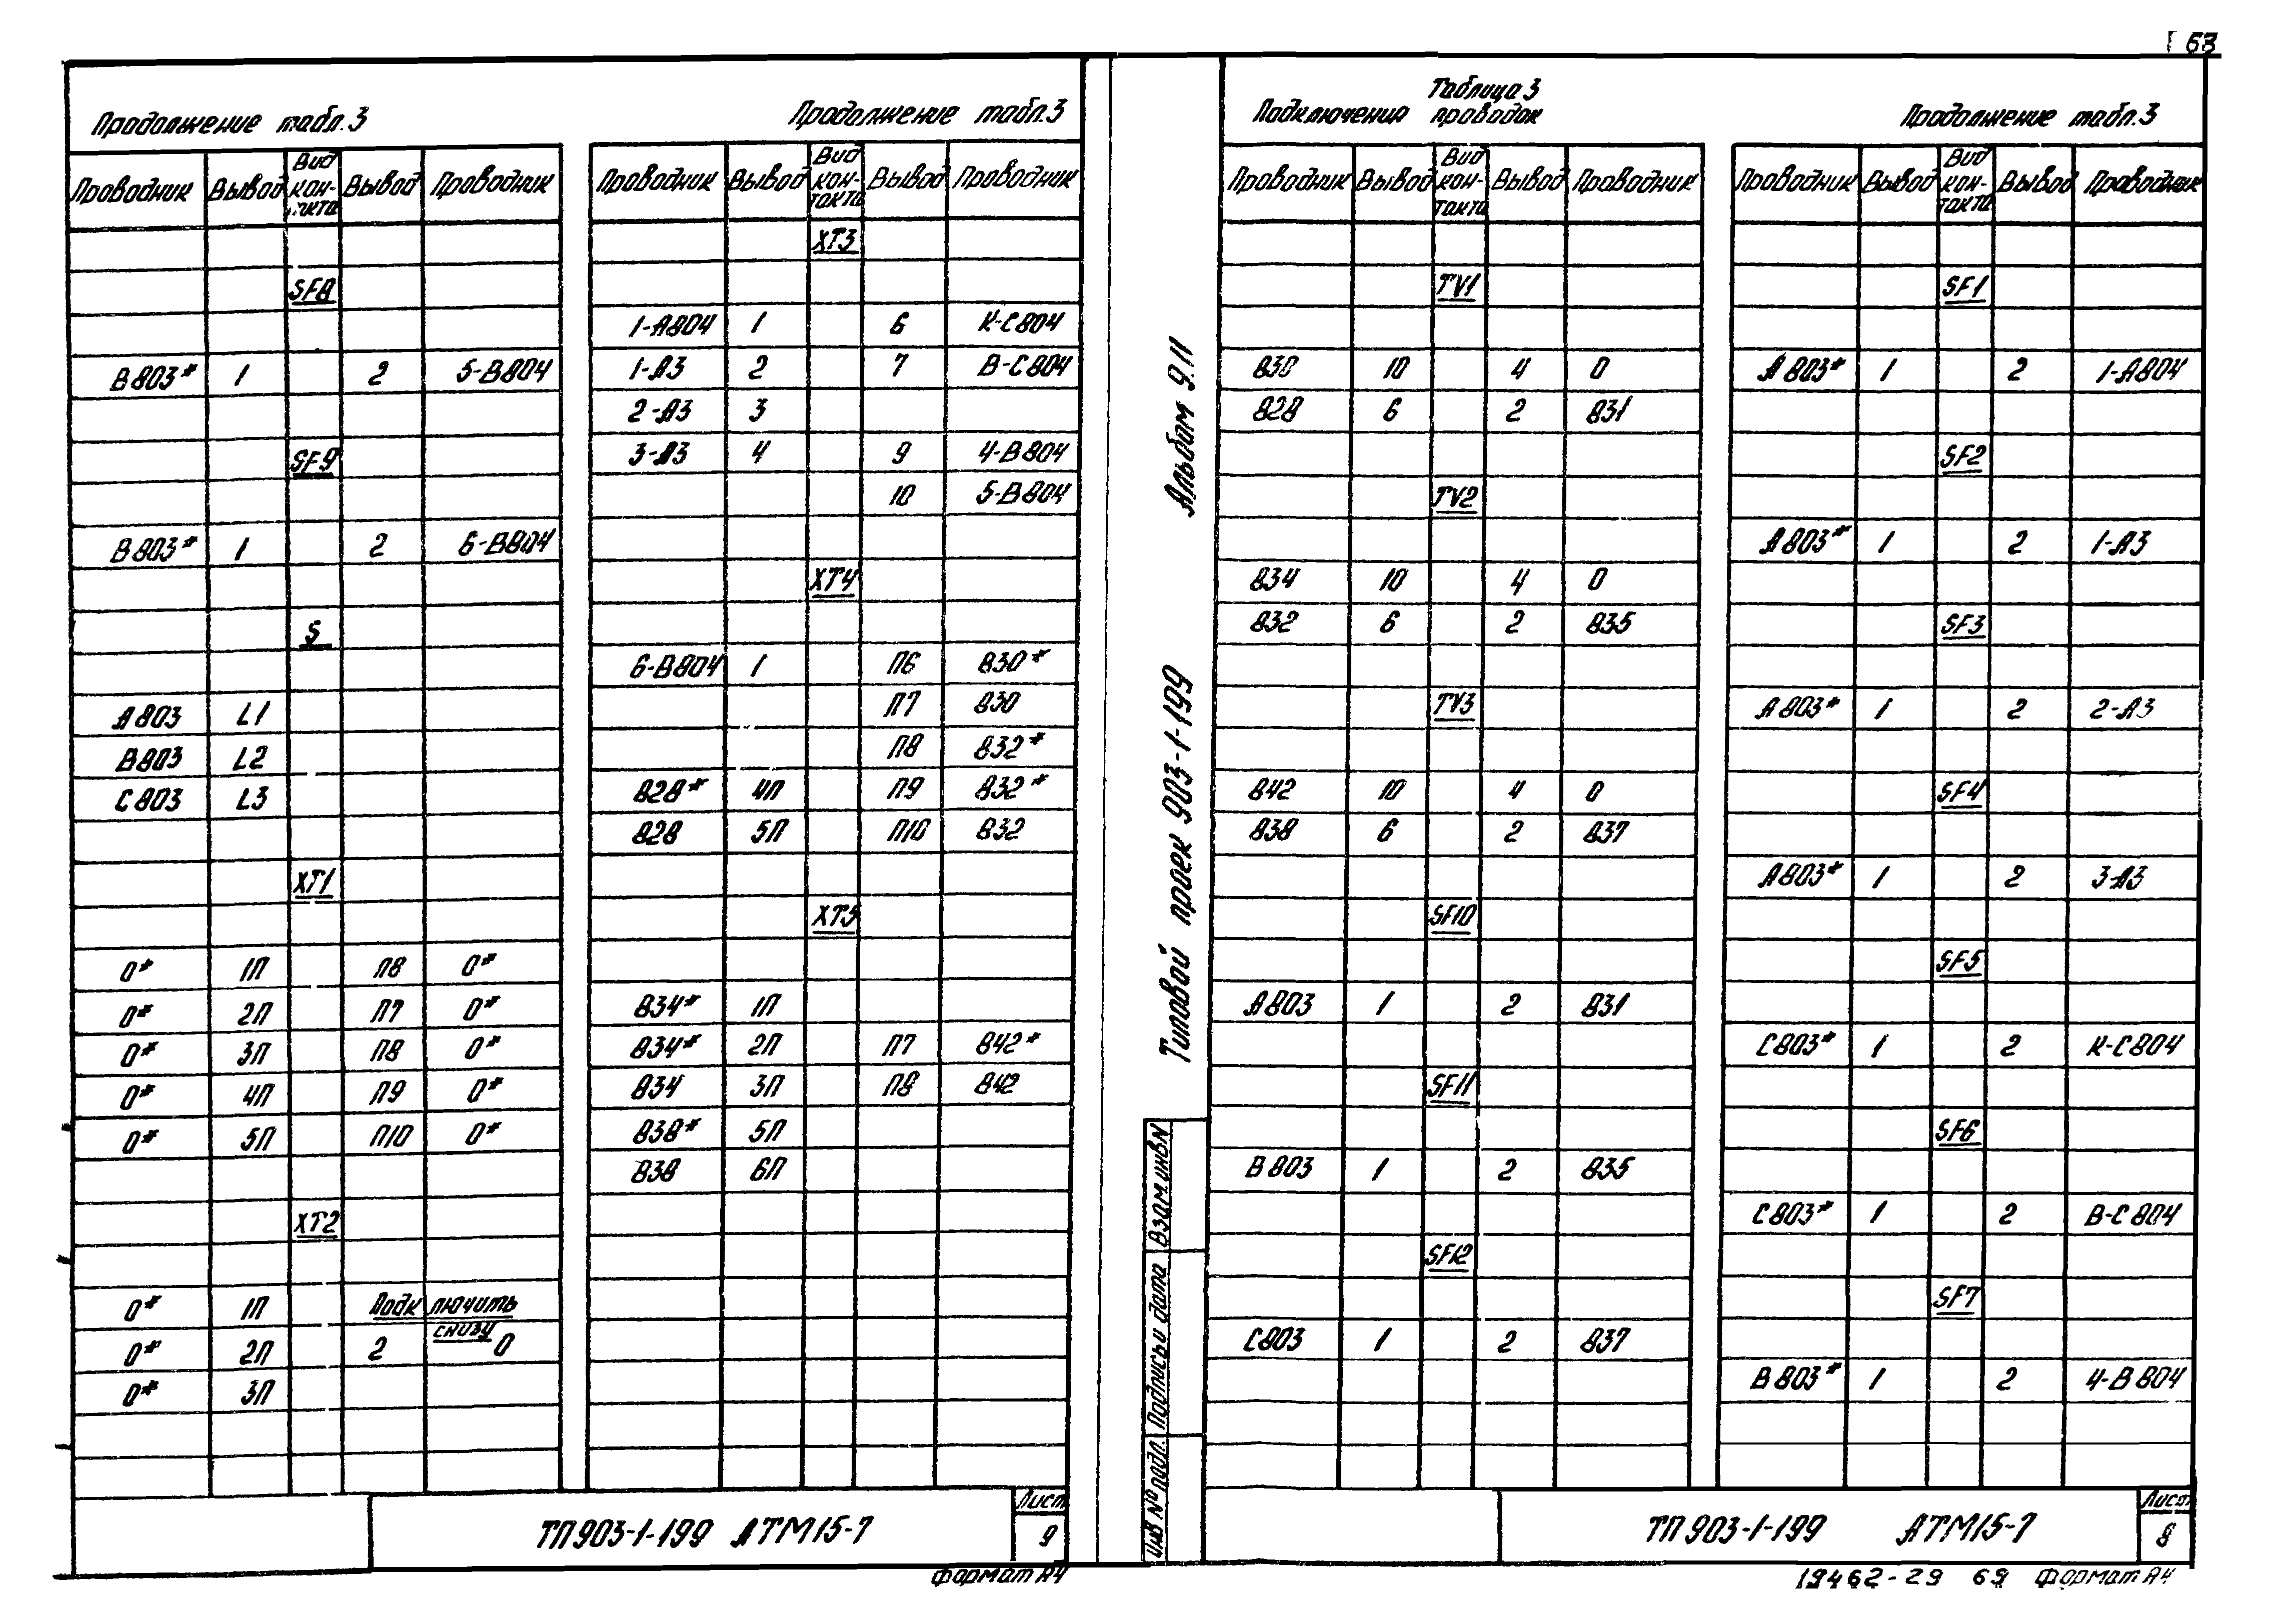 68
Продолжение табл.3
Проводник Вывод Вид кон-такта Вывод Проводник
SF8
В803* 1 2 5-В804
SF9
В803* 1 2 6-В804
S
А803 L1
В803 L2
С803 L3
XT1
0* 1П П8 0*
0* 2П П7 0*
0* 3П П8 0*
0* 4П П9 0*
0* 5П П10 0*
XT2
0* 1П Подключить
снизу
0* 2П 2 0
0* 3П
Продолжение табл.3
Проводник Вывод Вид кон-такта Вывод Проводник
XT3
1-А804 1 6 К-С804
1-А3 2 7 В-С804
2-А3 3
3-А3 4 9 4-В804
10 5-В804
XT4
6-В804 1 П6 830*
П7 830
П8 832*
828* 4П П9 832*
828 5П П10 832
XT5
834* 1П
834* 2П П7 842*
834 3П П8 842
838* 5П
838 6П
ТП903-1-199 АТМ15-7
Лист
9
Формат А4
Альбом 9.11
Типовой проек 903-1-199
Взам инв.N
Подпись и дата
Инв № подл.
Таблица 3
Подключения проводок
Проводник Вывод Вид кон-такта Вывод Проводник
TV1
830 10 4 0
828 6 2 831
TV2
834 10 4 0
832 6 2 835
TV3
842 10 4 0
838 6 2 837
SF10
А803 1 2 831
SF11
В803 1 2 835
SF12
С803 1 2 837
Продолжение табл.3
Проводник Вывод Вид кон-такта Вывод Проводник
SF1
А803* 1 2 1-А804
SF2
А803* 1 2 1-А3
SF3
А803* 1 2 2-А3
SF4
А803* 1 2 3-А3
SF5
С803* 1 2 К-С804
SF6
С803* 1 2 В-С804
SF7
В803* 1 2 4-В804
ТП903-1-199 АТМ15-7
Лист
8
19462-29 69 Формат А4